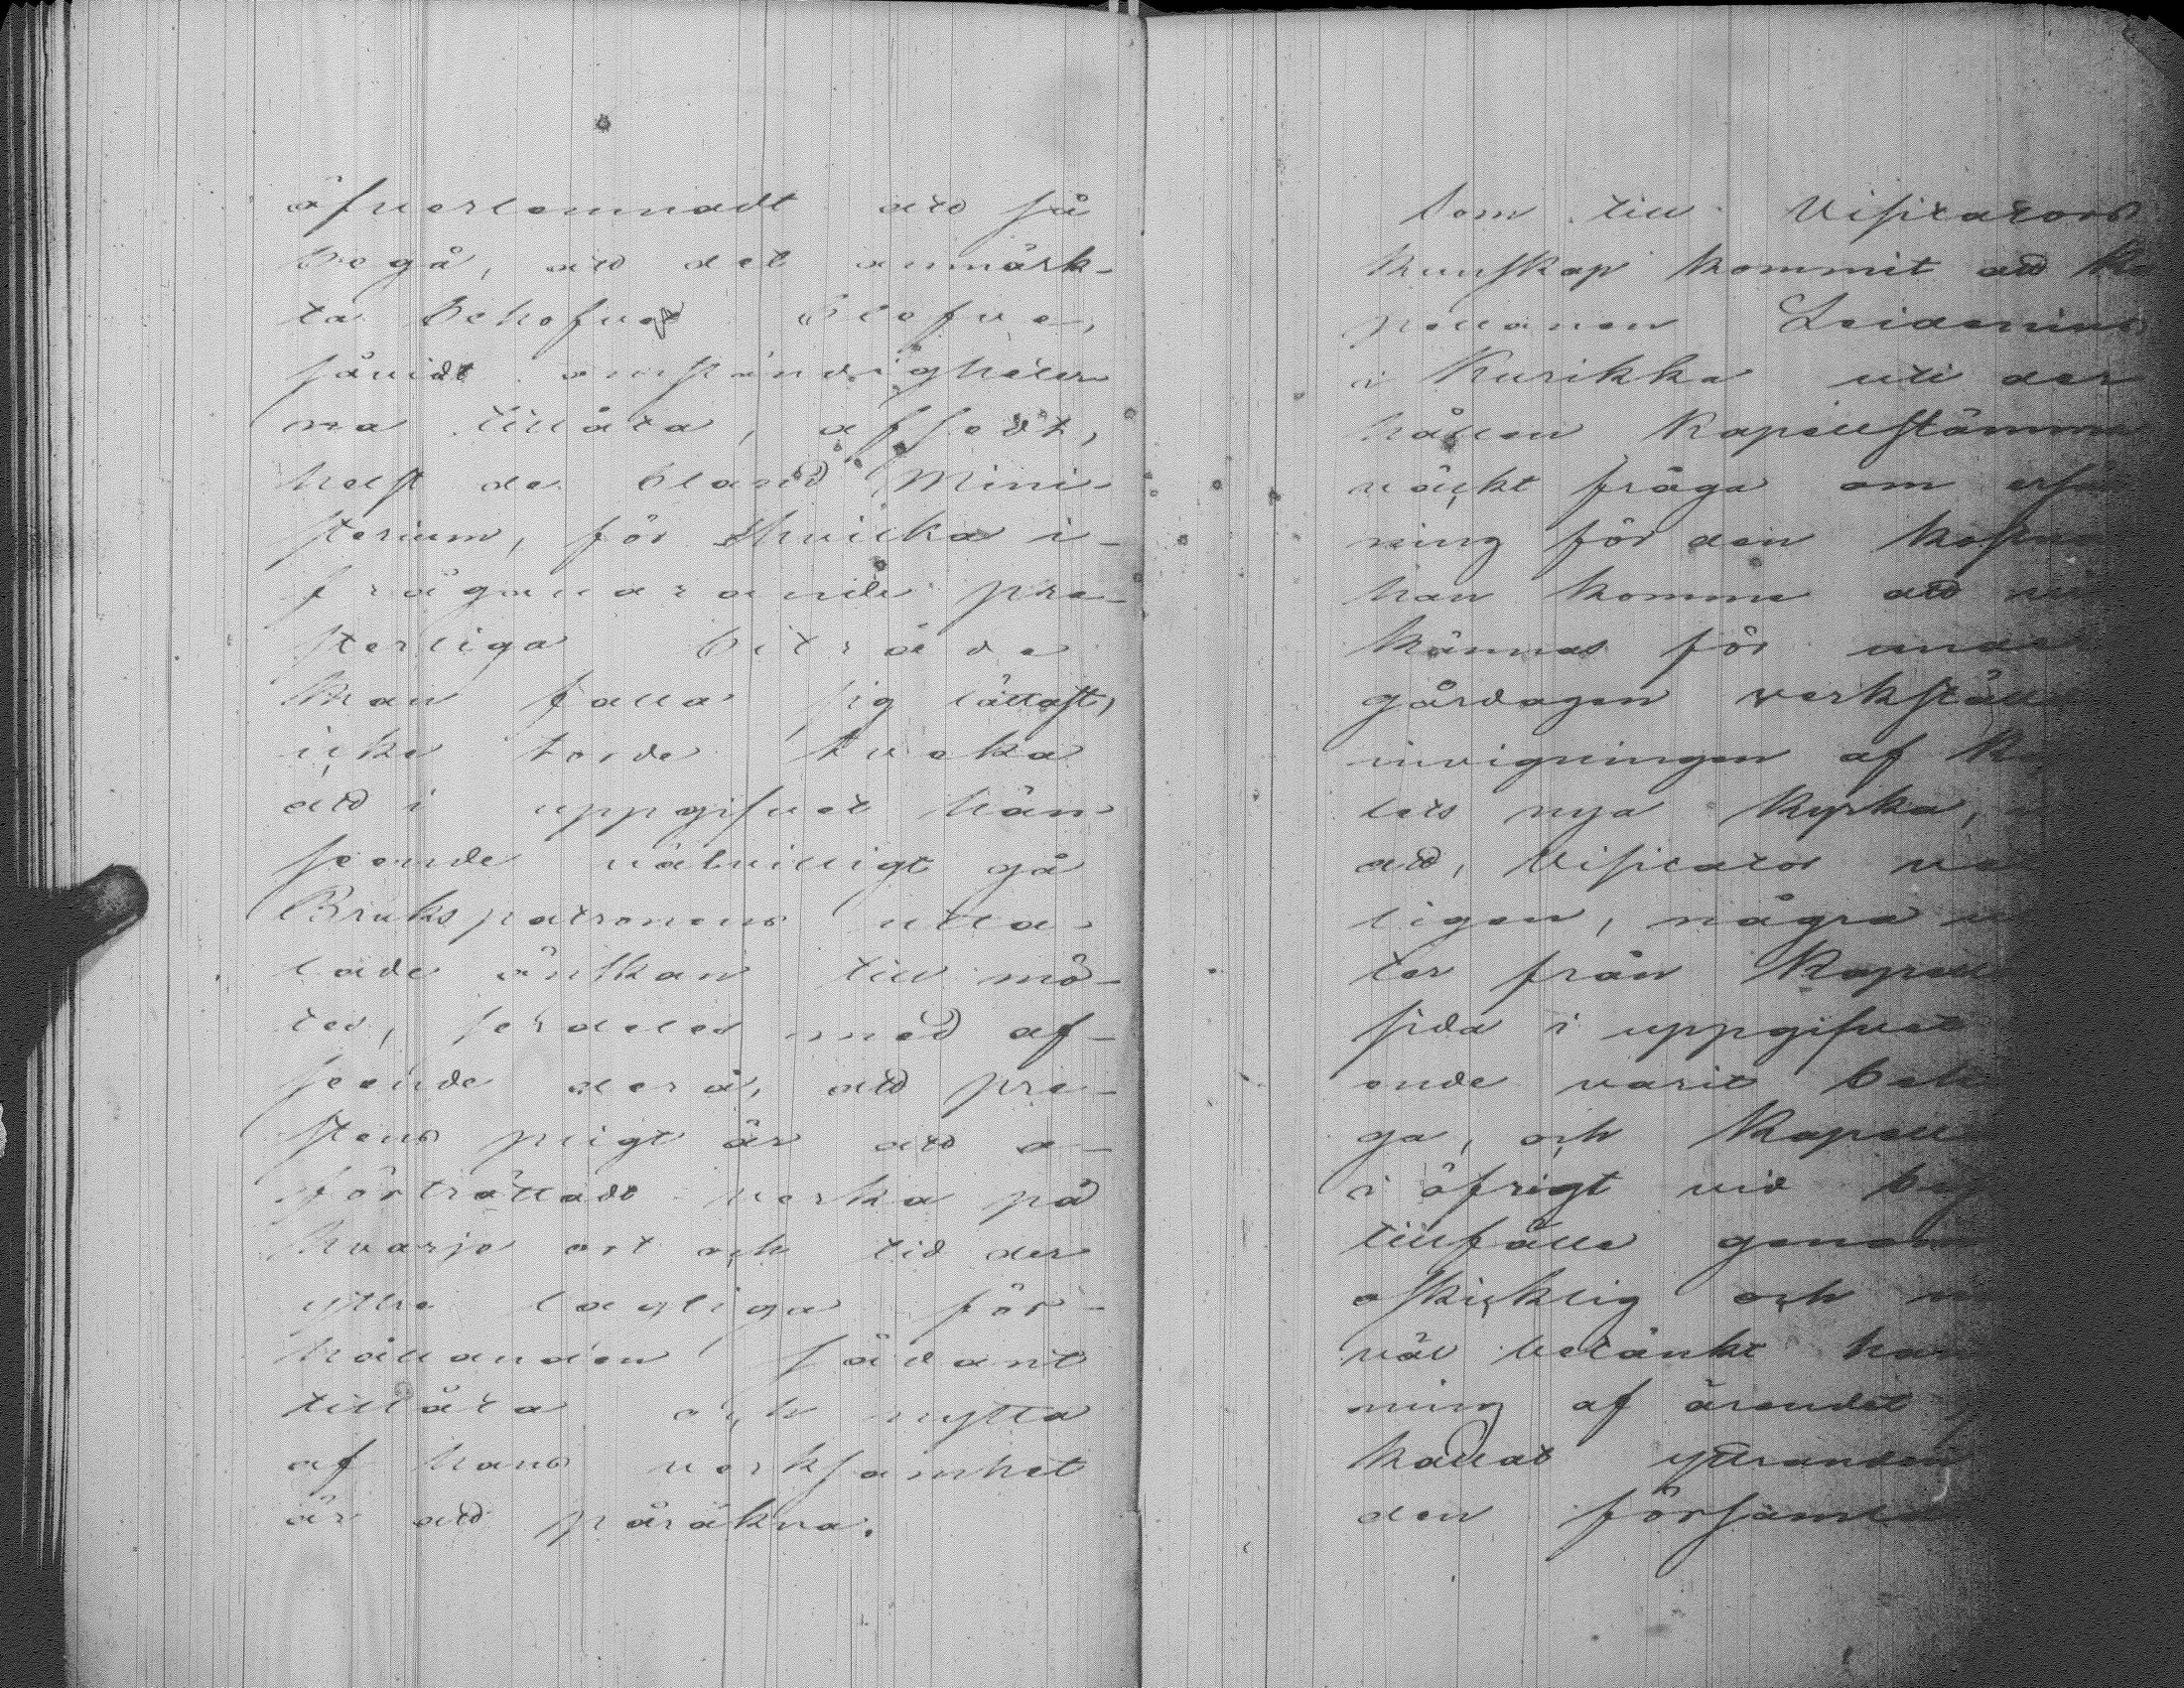 öfverlemnadt att så
begå, att det anmärk-
ta behofvet blefve,
såvidt omständigheter
na tillåta, afsedt,
helst de bland Mini-
sterium, för hvilka i-
frågavarande pre-
sterliga biträde
kan falla sig lättast,
icke torde tveka
att i uppgifvet hän
seende välvilligt gå
Brukspatronens utta-
lade önskan till mö-
tes, serdeles med af-
seende derå, att pre-
stens pligt är att o-
förträttadt verka på
hvarje ort och tid der
yttre lagliga för-
hållanden sådant
tillåta och nytta
af hans verksamhet
är att påräkna.
Som till Visitators
kunskap kommit att Ka
pellanen Leidenius
i Kurikka uti der
hållen Kapellstämma
väckt fråga om ersä
ning för den kostna
han komme att
kännas för unde
gårdagen verkställ
invigningen af Ka
lets nya kyrka,
att, Visitator ve
ligen, några
ter från Kapell
sida i uppgifvet
ende varit
ga, och Kapell
i öfrigt vid
tillfälle genom
oskicklig och
väl betänkt han
ning af ärendet
kallat yttranden
den församl